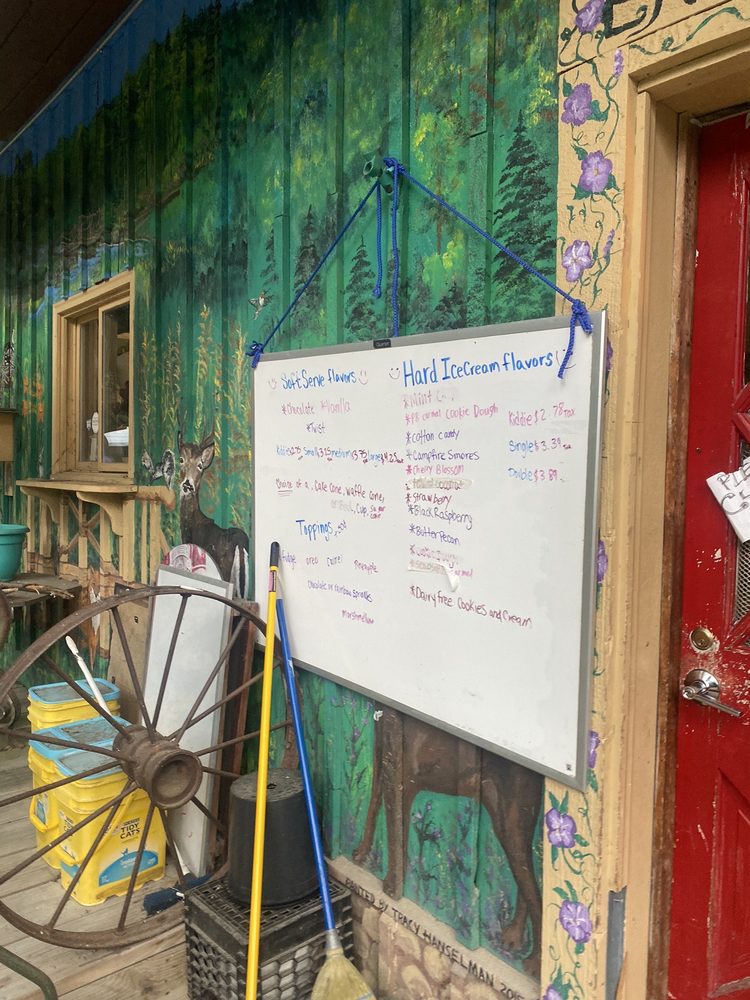 Soft Serve flavors
*Chocolate *Vanilla
*Twist
Choice of a, Cake Cone, Waffle Cone,
Cup, Sugar
cone
Toppings
Fudge oreo Pineapple
Chocolate or rainbow sprinkles
Marshmellow
Hard IceCream flavors
*Mint
*PB caramel Cookie Dough
*Cotton candy
*Campfire Smores
*Cherry Blossom
*Strawberry
*Black Raspberry
*Butter Pecan
*Dairy free Cookies and Cream
Kiddie $2.78
Single $3.39
Double $3.89
TIDY
CATS
PAINTED BY TRACY HANSELMAN